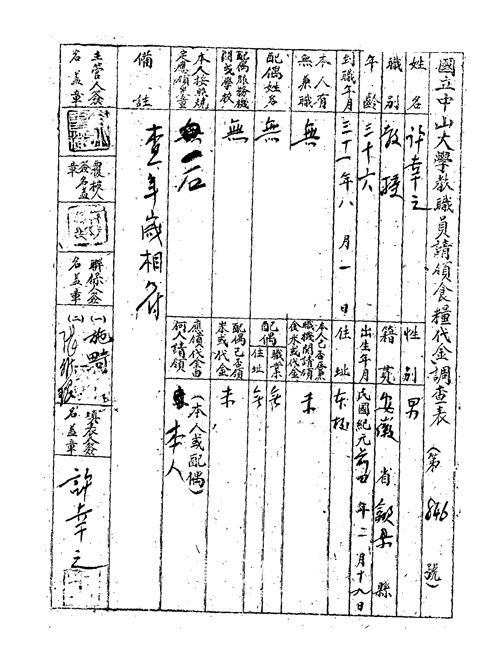 國立中山大學教職員請領食糧代金調查表（第 846 號）
姓名 許幸之 性別 男
職別 教授 籍貫 安徽省歙縣 縣
年齡 三十六 出生年月 民國紀元前四年二月十九日
到職年月 三十一年八月一日 住址 本校
本人有無兼職 無 本人已否在兼職機關請領食米或代金 未
配偶姓名 無 配偶職業住址 無 無
配偶服務機關或學校 無 配偶已否領米或代金 未
本人按照規定應領食量 一石 應領代金由何人請領 （本人或配偶） 本人
備註 查年歲相符
主管人簽名蓋章
覆核人簽名蓋章
聯保人簽名蓋章 （一） 施 （二） 張
填表人簽名蓋章 許幸之